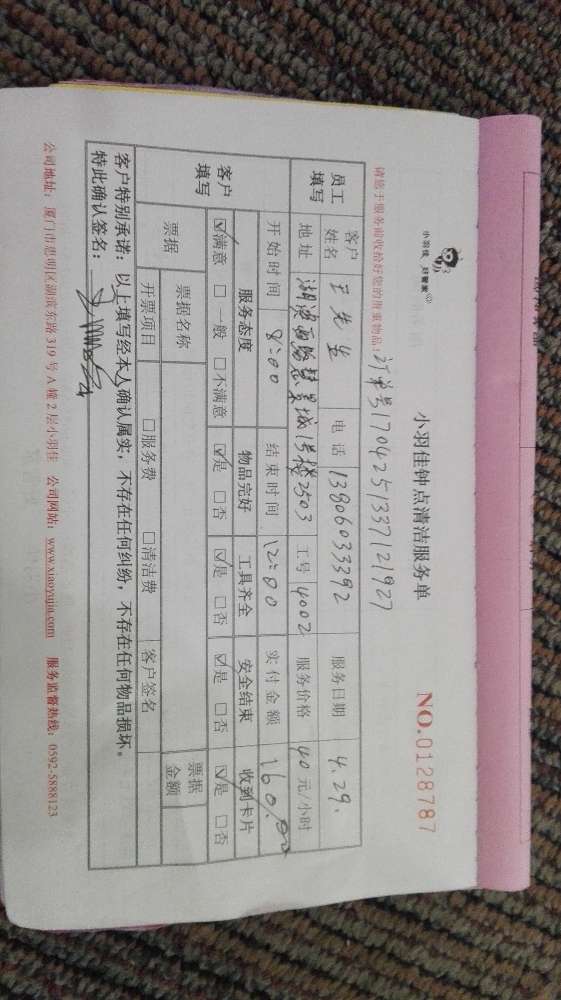 小羽佳 好管家
小羽佳钟点清洁服务单
NO.0128787
请您于服务前收拾好您的贵重物品！
订单号170425133712192７
员工填写
客户姓名 王先生 电话 13806033392 服务日期 4.29.
地址 湖滨西路慧景城1号楼2503 工号 4002 服务价格 40元/小时
开始时间 8:00 结束时间 12:00 实付金额 160.00
客户填写
服务态度 物品完好 工具齐全 安全结束 收到卡片
☑满意 □一般 □不满意 ☑是 □否 ☑是 □否 ☑是 □否 ☑是 □否
票据 票据名称 票据金额
开票项目 □服务费 □清洁费 客户签名
客户特别承诺：以上填写经本人确认属实，不存在任何纠纷，不存在任何物品损坏。
特此确认签名：
公司地址：厦门市思明区湖滨东路319号A幢2层小羽佳 公司网站：www.xiaoyujia.com 服务监督热线：0592-5888123